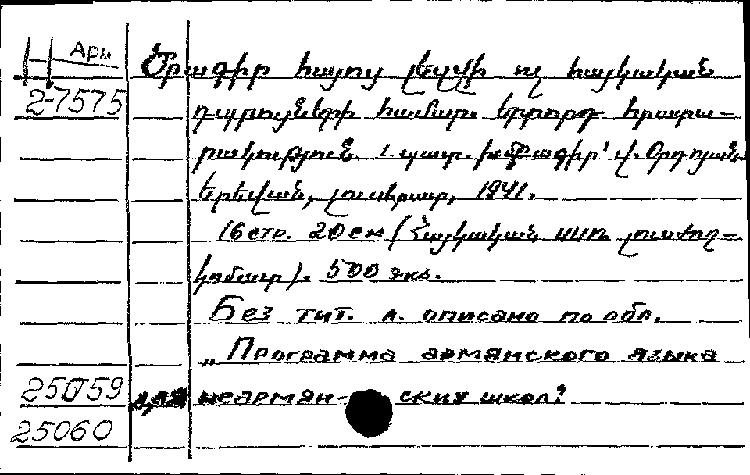 Арм
2-7575
Ծրագիր հայոց լեզվի ոչ հայկական
դպրոցների համար. Երրորդ հրատա-
րակություն. 1. պատ. խմբագիր՝ Վ. Օրդոյան
Երեվան, լուսհրատ, 1941.
16 стр. 20 см (Հայկական ՍՍՌ լուսժող-
կոմատ). 500 экз.
Без тит. л. описано по обл.
„Программа армянского языка
25059 для неармян- ских школ?
25060